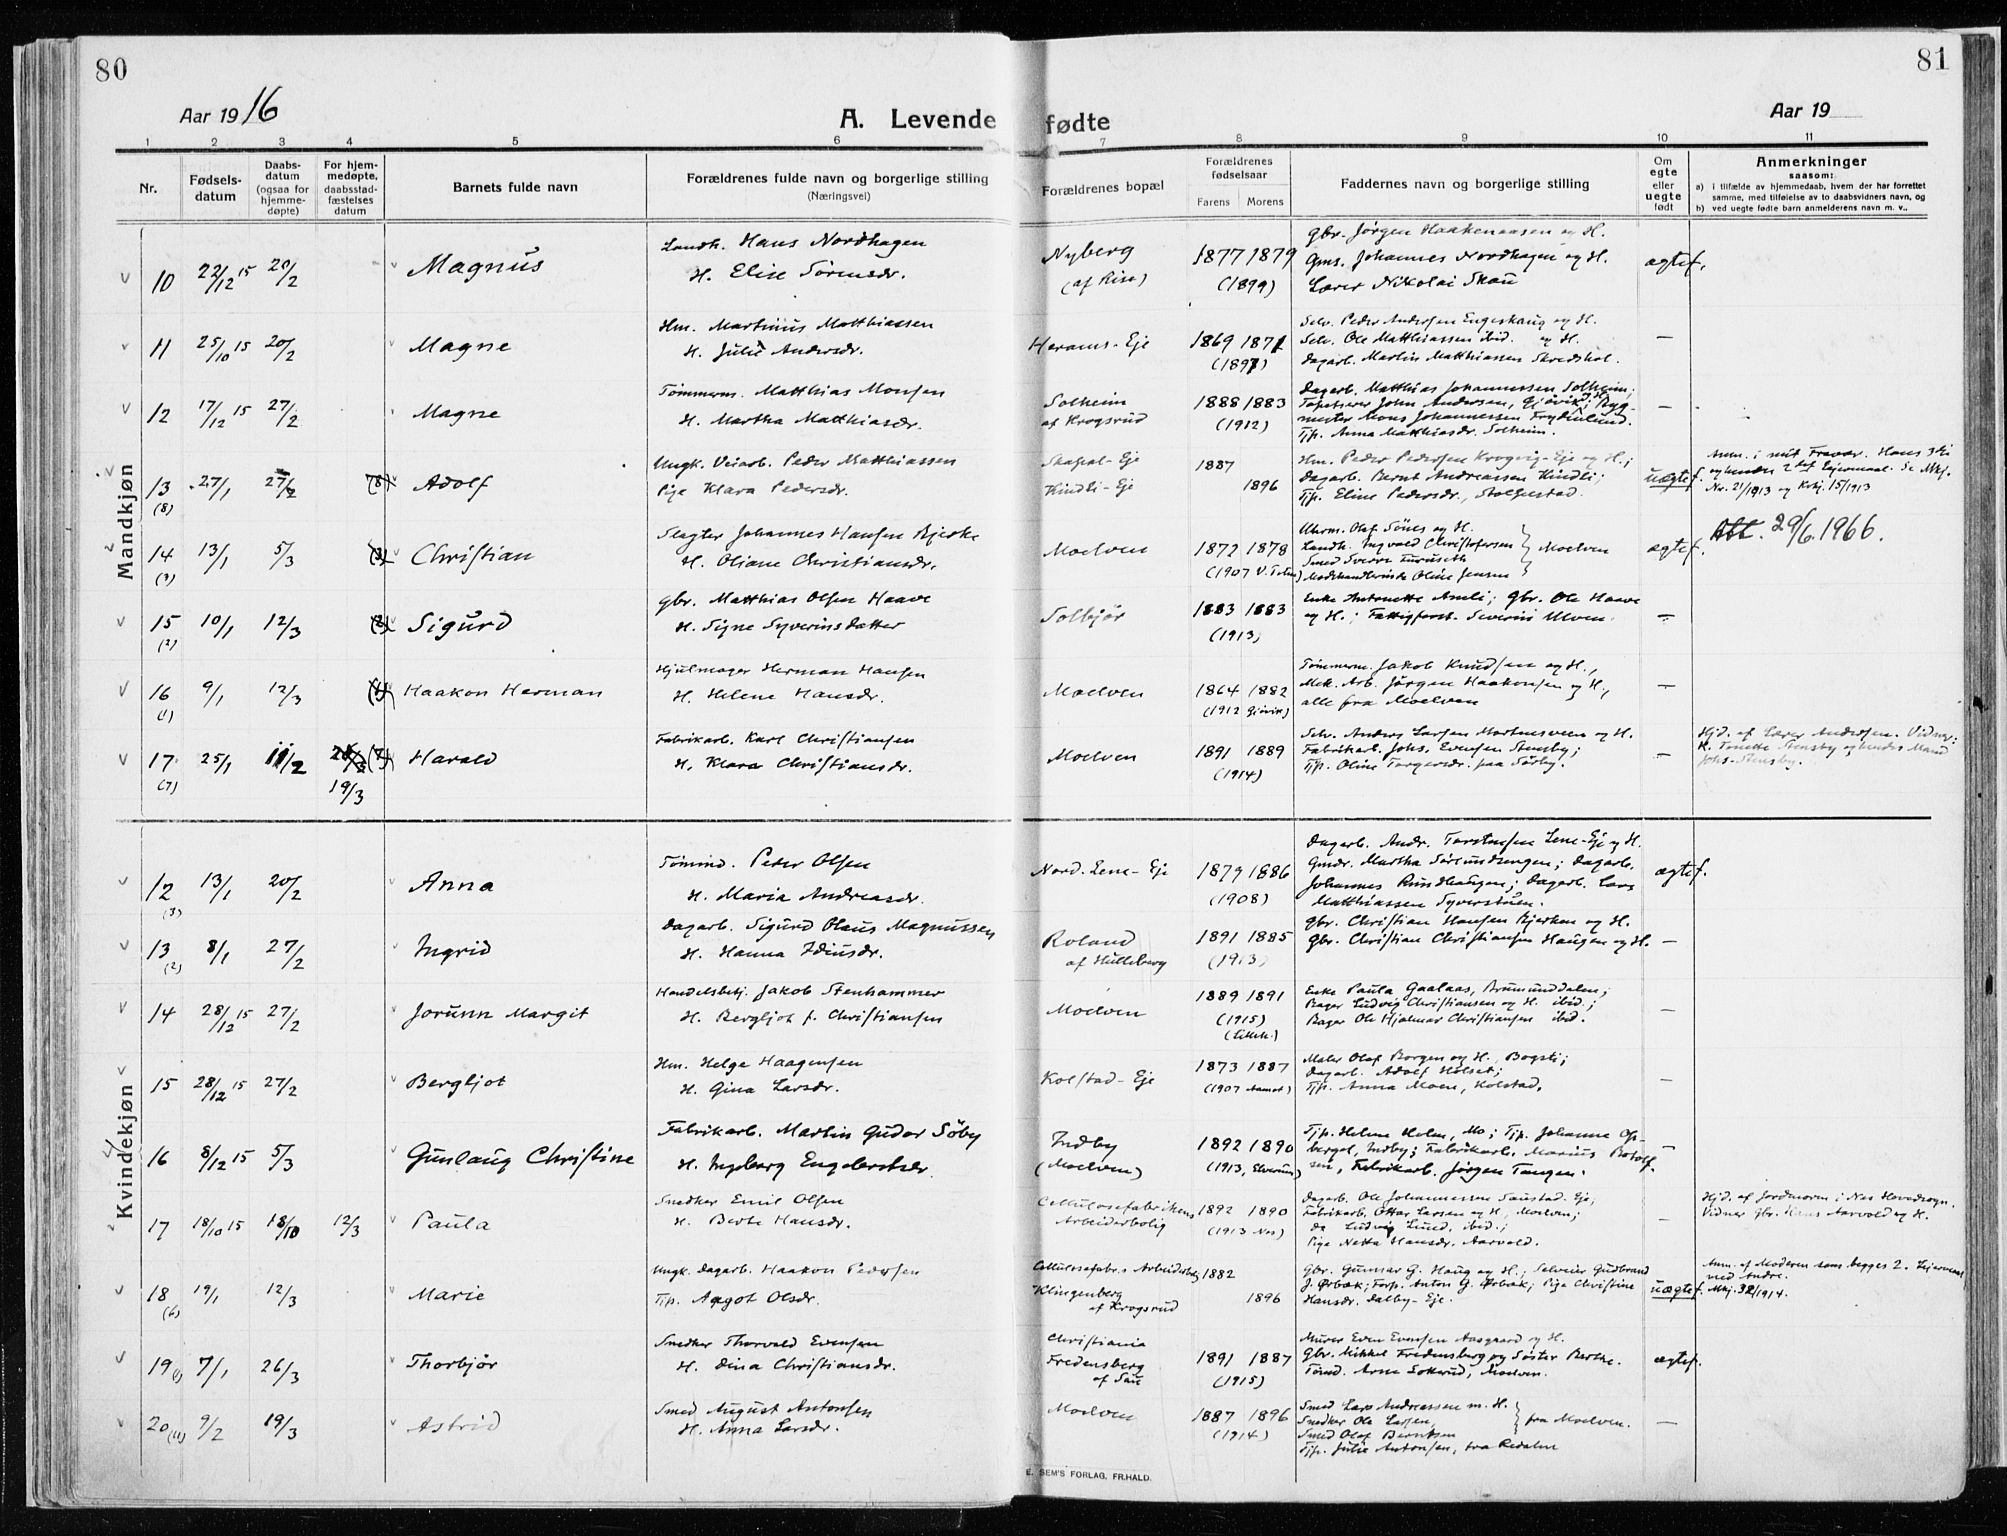 80
81
Aar 1916
A. Levende fødte
Aar 19
1 2 3 4 5 6 7 8 9 10 11
Nr.
Fødsels-
datum
Daabs-
datum
(ogsaa for
hjemme-
døpte)
For hjem-
medøpte,
daabsstad-
fæstelses
datum
Barnets fulde navn
Forældrenes fulde navn og borgerlige stilling
(Næringsvei)
Forældrenes bopæl
Forældrenes
fødselsaar
Farens Morens
Faddernes navn og borgerlige stilling
Om
egte
eller
uegte
født
Anmerkninger
saasom:
a) i tilfælde av hjemmedaab, hvem der har forrettet
samme, med tilføielse av to daabsvidners navn, og
b) ved uegte fødte barn anmelderens navn m. v..
Mandkjøn
10 22/12 15 20/2 Magnus
Landh. Hans Nordhagen
H. Elise Sörensdr.
Nyberg
(af Rise)
1877 1879
(1899)
Gbr. Jørgen Haakenaasen og H.
Gms. Johannes Nordhagen og H.
Lærer Nikolai Skau
ægtef.
11 25/10 15 20/2 Magne
Hm. Martinus Matthiassen
H. Julie Andersdr.
Herams-Eje
1869 1871
(1897)
Selv. Peder Andersen Engeskaug og H.
Selv. Ole Matthiassen ibid. og H.
Dagarb. Martin Matthiassen Skredshol.
—
12 17/12 15 27/2 Magne
Tömmerm. Matthias Monsen
H. Martha Matthiasdr.
Solheim
af Krogsrud
1888 1883
(1912)
Dagarb. Matthias Johannessen Solheim;
Tapetserer John Andersen, Gjövik; Byg-
mester Mons Johannessen Frydenlund.
Tjp. Anna Matthiasdr. Solheim.
—
13 27/1 27/2 (8) Adolf
(8)
Ungk. Veiarb. Peder Matthiassen
Pige Klara Pedersdr.
Skafsal-Eje
Kindli-Eje
1887
1896
Hm. Peder Pedersen Krogvig-Eje og H.;
Dagarb. Bernt Andreassen Kindli;
Tjp. Eline Pedersdr., Stolpestad.
uægtef.
Anm. i mit Fravær. Hans 3die
og hendes 2det Leiermaal. Se Mkj.
Nr. 21/1913 og Kvkj. 15/1913
14 13/1 5/3 (3) Christian
(3)
Slagter Johannes Hansen Bjerke
H. Oliane Christiansdr.
Moelven
1872 1878
(1907 V. Toten)
Uhrm. Olaf Sönes og H.
Landh. Ingvald Christofersen
Smed Sverre Furuseth
Modehandlerinde Oline Jensen
Moelven
ægtef.
Att. 29/6.1966.
15 10/1 12/3 (2) Sigurd
(2)
Gbr. Matthias Olsen Haave
H. Signe Syverinsdatter
Solbjør
1883 1883
(1913)
Enke Antonette Amli; Gbr. Ole Haave
og H.; Fattigforst. Severin Ulven.
—
16 9/1 12/3 (1) Haakon Herman
(1)
Hjulmager Herman Hansen
H. Helene Hansdr.
Moelven
1864 1882
(1912 Gjövik)
Tömmerm. Jakob Knudsen og H.,
Mek. Arb. Jörgen Haakonsen og H.,
alle fra Moelven
—
17 25/1 11/2 (7) Harald
(7) 19/3
Fabrikarb. Karl Christiansen
H. Klara Christiansdr.
Moelven
1891 1889
(1914)
Selv. Anders Larsen Mortensveen og H.
Fabrikarb. Johs. Evensen Stensby;
Tjp. Oline Torgersdr. paa Sörby.
—
Hjd. af Lærer Andersen. Vidner:
K. Tonette Stensby og hendes Mand
Johs. Stensby.
Kvindekjøn
12 13/1 20/2 Anna
(3)
Tömmd. Peder Olsen
H. Maria Andreasdr.
Nord. Lene-Eje
1879 1886
(1908)
Dagarb. Andr. Torstensen Lene-Eje og H.
Gmdr. Martha Sörlundsengen; Dagarb.
Johannes Rundhaugen; Dagarb. Lars
Matthiassen Syverstuen.
ægtef.
13 8/1 27/2 Ingrid
(2)
Dagarb. Sigurd Olaus Magnussen
H. Hanna Idinsdr.
Roland
af Hulleberg
1891 1885
(1913)
Gbr. Christian Hansen Bjerken og H.
Gbr. Christian Christiansen Haugen og H.
—
14 28/12 15 27/2 Jorunn Margit
Handelsbetj. Jakob Stenhammer
H. Bergljot f. Christiansen
Moelven
1889 1891
(1915)
(Lilleh.)
Enke Paula Gaalaas, Brumunddalen;
Bager Ludvig Christiansen og H. ibid.;
Bager Ole Hjalmar Christiansen ibid.
—
15 28/12 15 27/2 Bergljot
Hm. Helge Haagensen
H. Gina Larsdr.
Kolstad-Eje
1873 1887
(1907 Aamot)
Maler Olaf Borgen og H., Bogsti;
Dagarb. Adolf Holset;
Tjp. Anna Moen, Kolstad.
—
16 8/12 15 5/3 Gunlaug Christine
Fabrikarb. Martin Gudor Söby
H. Ingeborg Engebretsdr.
Indby
(Moelven)
1892 1890
(1913, Elverum)
Tjp. Helene Holm, Mo; Tjp. Johanne Op-
berget, Indby; Fabrikarb. Marius Botolf-
sen, Fabrikarb. Jörgen Tangen.
—
17 18/10 15 18/10 12/3 Paula
Snedker Emil Olsen
H. Berte Hansdr.
Cellulosefabrikens
Arbeiderbolig
1892 1890
(1913 Nes)
Dagarb. Ole Johannessen Saustad-Eje;
Fabrikarb. Ottar Larsen og H., Moelven;
do Ludvig Lund, ibid.;
Pige Netta Hansdr. Aarvold.
—
Hjd. af Jordmoren i Nes Hovedsogn.
Vidner Gbr. Hans Aarvold og H.
18 19/1 12/3 Marie
(6)
Ungk. Dagarb. Haakon Pedersen
Tjp. Aagot Olsdr.
Cellulosefabr.s Arbeiderbolig
Klingenberg
af Krogsrud
1882
1896
Gbr. Gunnar G. Haug og H.; Selveier Gudbrand
J. Ørbæk; Forp. Anton G. Ørbæk; Pige Christine
Hansdr. Dalby-Eje.
uægtef.
Anm. af Moderen som begges 2. Leiermaal
med Andre.
Mkj. 32/1914.
19 7/1 26/3 Thorbjør
Snedker Thorvald Evensen
H. Dina Christiansdr.
Christiania
Fredensberg
af Sau
1891 1887
(1915)
Murer Even Evensen Aasgaard og H.
Gbr. Mikkel Fredensberg og Søster Berthe.
Tömd. Arne Sokkerud, Moelven.
ægtef.
20 (11) 9/2 19/3 Astrid
Smed August Antonsen
H. Anna Larsdr.
Moelven
1887 1896
(1914)
Smed Lars Andreassen m. H.
Snedker Ole Larsen,
Smed Olaf Berntsen
fra Moelven.
Tjp. Julie Antonsen, fra Redalen
—
E. SEM'S FORLAG, FR.HALD.